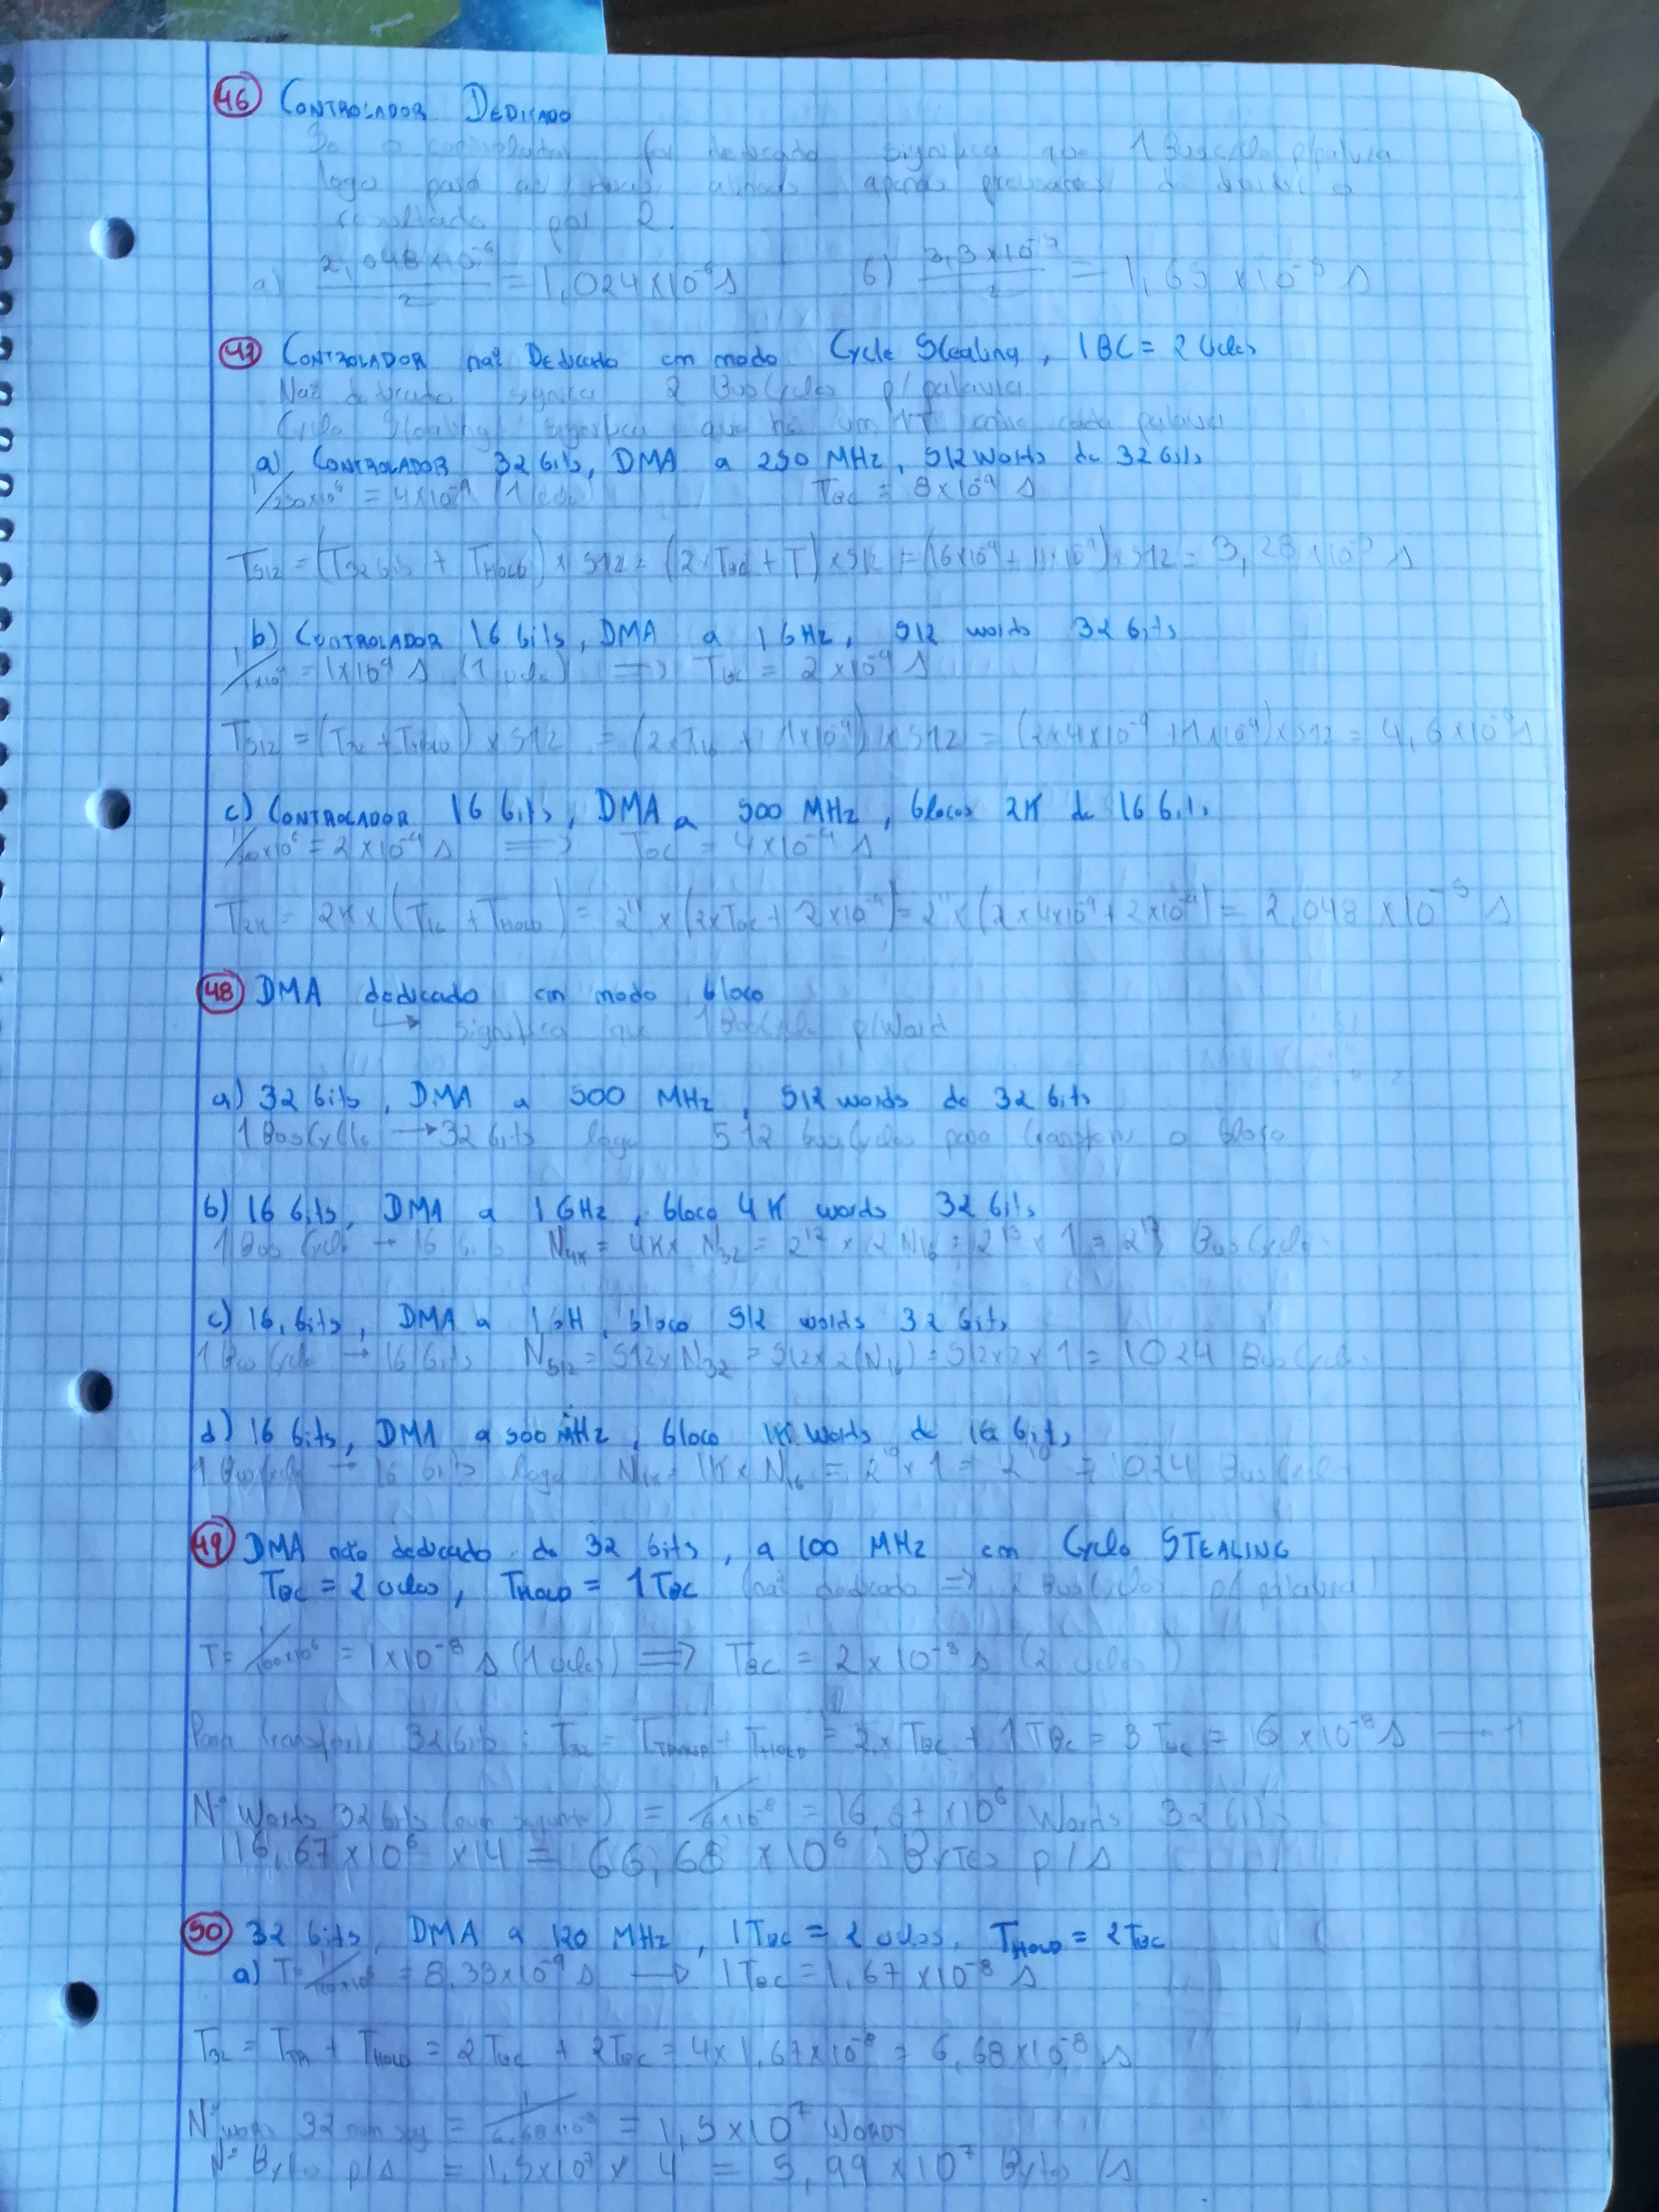 46 CONTROLADOR DEDICADO
Se o controlador for dedicado significa que 1 BusCycle p/palavra
logo para as duas alíneas apenas precisamos de dividir o
resultado por 2.
a) 2,048x10^-6 / 2 = 1,024x10^-6 s b) 3,3x10^-5 / 2 = 1,65x10^-5 s
47 CONTROLADOR não Dedicado em modo Cycle Stealing, 1BC = 2 Ciclos
Não dedicado significa 2 BusCycles p/palavra
Cycle Stealing significa que há um 1T entre cada palavra
a) CONTROLADOR 32 bits, DMA a 250 MHz, 512 words de 32 bits
1/250x10^6 = 4x10^-9 (1 ciclo) TBC = 8x10^-9 s
T512 = (T32bits + THOLD) x 512 = (2xTBC + T) x 512 = (16x10^-9 + x10^-9) x 512 = 3,28x10^-5 s
b) CONTROLADOR 16 bits, DMA a 1GHz, 512 words 32 bits
= 1x10^-9 s (1 ciclo) => TBC = 2x10^-9 s
T512 = (T32 + THOLD) x 512 = (2xT16 + 1x10^-9) x 512 = (2x4x10^-9 + 1x10^-9) x 512 = 4,6x10^-6 s
c) CONTROLADOR 16 bits, DMA a 500 MHz, blocos 2K de 16 bits
= 2x10^-9 s => TBC = 4x10^-9 s
T2K = 2K x (T16 + THOLD) = 2^11 x (2xTBC + 2x10^-9) = 2^11 x (2x4x10^-9 + 2x10^-9) = 2,048x10^-5 s
48 DMA dedicado em modo bloco
↳ significa que 1 BusCycle p/Word
a) 32 bits, DMA a 500 MHz, 512 words de 32 bits
1 BusCycle → 32 bits logo 512 busCycles para transferir o bloco
b) 16 bits, DMA a 1GHz, bloco 4K words 32 bits
1 Bus Cycle → 16 bits N4K = 4K x N32 = 2^12 x 2 N16 = 2^13 x 1 = 2^13 BusCycle.
c) 16 bits, DMA a 1GH, bloco 512 words 32 bits
1 BusCycle → 16 bits N512 = 512 x N32 = 512 x 2(N16) = 512x2x1 = 1024 BusCycle.
d) 16 bits, DMA a 500 MHz, bloco 1K words de 16 bits
1 BusCycle → 16 bits logo N1K = 1K x N16 = 2^10 x 1 = 2^10 = 1024 BusCycle
49 DMA não dedicado de 32 bits, a 100 MHz em Cycle STEALING
TBC = 2 ciclos, THOLD = 1TBC (não dedicado => 2 BusCycles p/palavra)
T = 1/100x10^6 = 1x10^-8 s (1 ciclo) => TBC = 2x10^-8 s (2 ciclos)
Para transferir 32bits: T32 = + THOLD = 2xTBC + 1TBC = 3TBC = 6x10^-8 s
Nº Words 32 bits (num segundo) = 1/6x10^-8 = 16,67x10^6 Words 32 bits
16,67x10^6 x 4 = 66,68x10^6 Bytes p/s
50 32 bits, DMA a 120 MHz, 1TBC = 2 ciclos, THOLD = 2TBC
a) T = 1/120x10^6 = 8,33x10^-9 s → 1TBC = 1,67x10^-8 s
T32 = TTR + THOLD = 2TBC + 2TBC = 4x1,67x10^-8 = 6,68x10^-8 s
Nº words 32 num seg = 1/6,68x10^-8 = 1,5x10^7 Words
Nº Bytes p/s = 1,5x10^7 x 4 = 5,99x10^7 Bytes/s